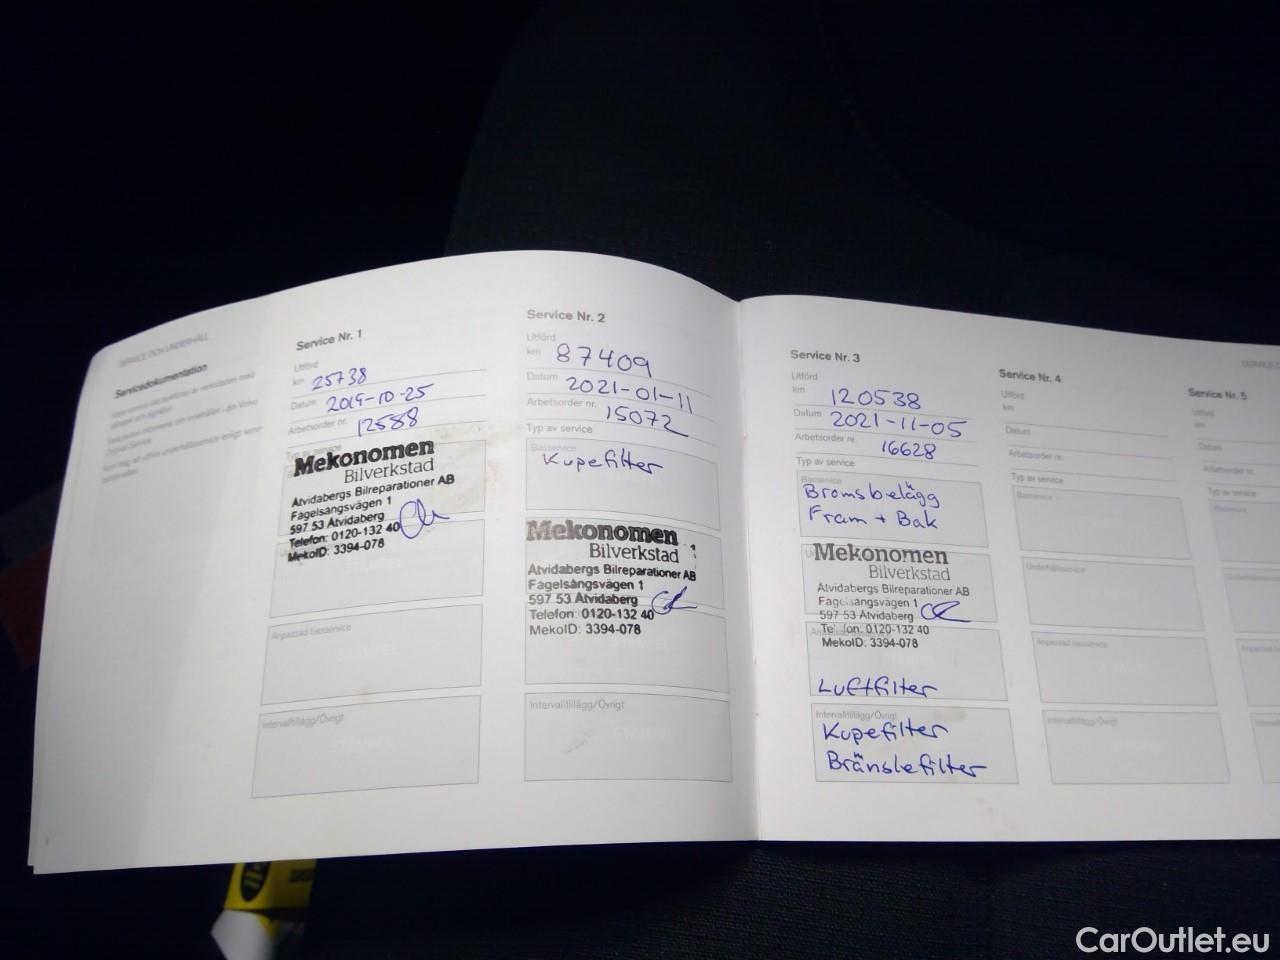 SERVICE OCH UNDERHÅLL
Servicedokumentation
Service Nr. 1
Utförd
km 25738
Datum 2019-10-25
Arbetsorder nr. 12588
Typ av service
Mekonomen
Bilverkstad
Åtvidabergs Bilreparationer AB
Fågelsångsvägen 1
597 53 Åtvidaberg
Telefon: 0120-132 40
MekoID: 3394-078
Anpassad basservice
Intervalltillägg/Övrigt
STÄMPEL
Service Nr. 2
Utförd
km 87409
Datum 2021-01-11
Arbetsorder nr. 15072
Typ av service
Basservice
Kupefilter
Mekonomen
Bilverkstad
Åtvidabergs Bilreparationer AB
Fågelsångsvägen 1
597 53 Åtvidaberg
Telefon: 0120-132 40
MekoID: 3394-078
Intervalltillägg/Övrigt
STÄMPEL
Service Nr. 3
Utförd
km 120538
Datum 2021-11-05
Arbetsorder nr. 16628
Typ av service
Basservice
Bromsbelägg
Fram + Bak
Mekonomen
Bilverkstad
Åtvidabergs Bilreparationer AB
Fågelsångsvägen 1
597 53 Åtvidaberg
Telefon: 0120-132 40
MekoID: 3394-078
Luftfilter
Intervalltillägg/Övrigt
Kupefilter
Bränslefilter
Service Nr. 4
Utförd
km
Datum
Arbetsorder nr.
Typ av service
Basservice
Underhållsservice
Anpassad basservice
Intervalltillägg/Övrigt
Service Nr. 5
Utförd
km
Datum
Arbetsorder nr.
Typ av service
Basservice
CarOutlet.eu